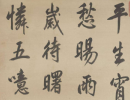 平生宵
愁暘雨
歲待曙
憐五噫